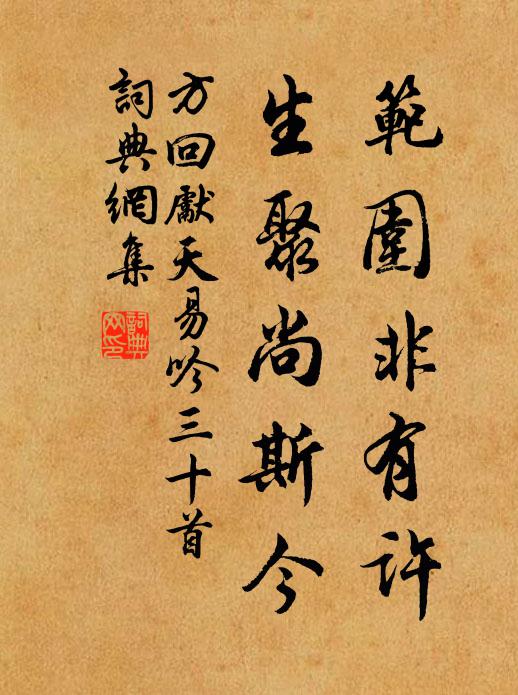 範圍非有許
生聚尚斯今
方回獻天易吟三十首
詞典網集
詞典網印